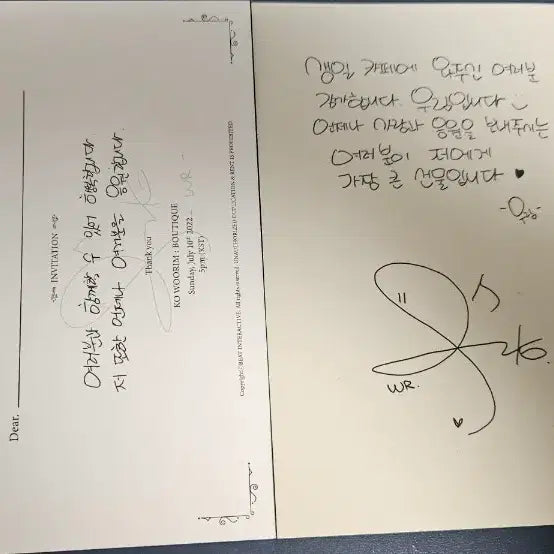 Dear.
INVITATION
여러분과 함께할 수 있어 행복합니다
저 또한 언제나 여러분을 응원합니다.
Thank you
KO WOORIM : BOUTIQUE
Sunday, July 10th 2022
5pm (KST)
WR
Copyrights BEAT INTERACTIVE. All rights reserved. UNAUTHORIZED DUPLICATION & RENT IS PROHIBITED
생일 카페에 와주신 여러분
감사합니다. 우림입니다
언제나 사랑과 응원을 보내주시는
여러분이 저에게
가장 큰 선물입니다 ♥
-우림-
WR.